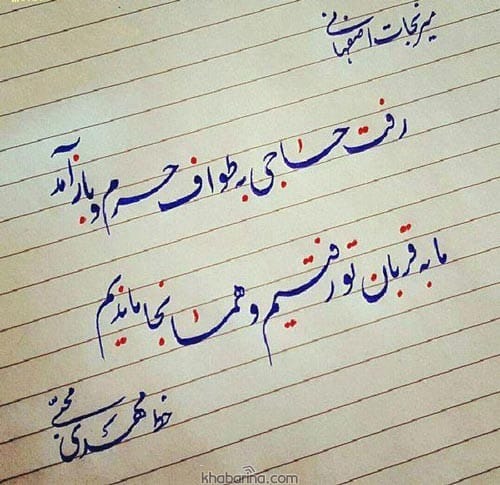 میرنجات اصفهانی
رفت حاجی به طواف حرم و باز آمد
ما به قربان تو رفتیم و همانجا ماندیم
khabarina.com